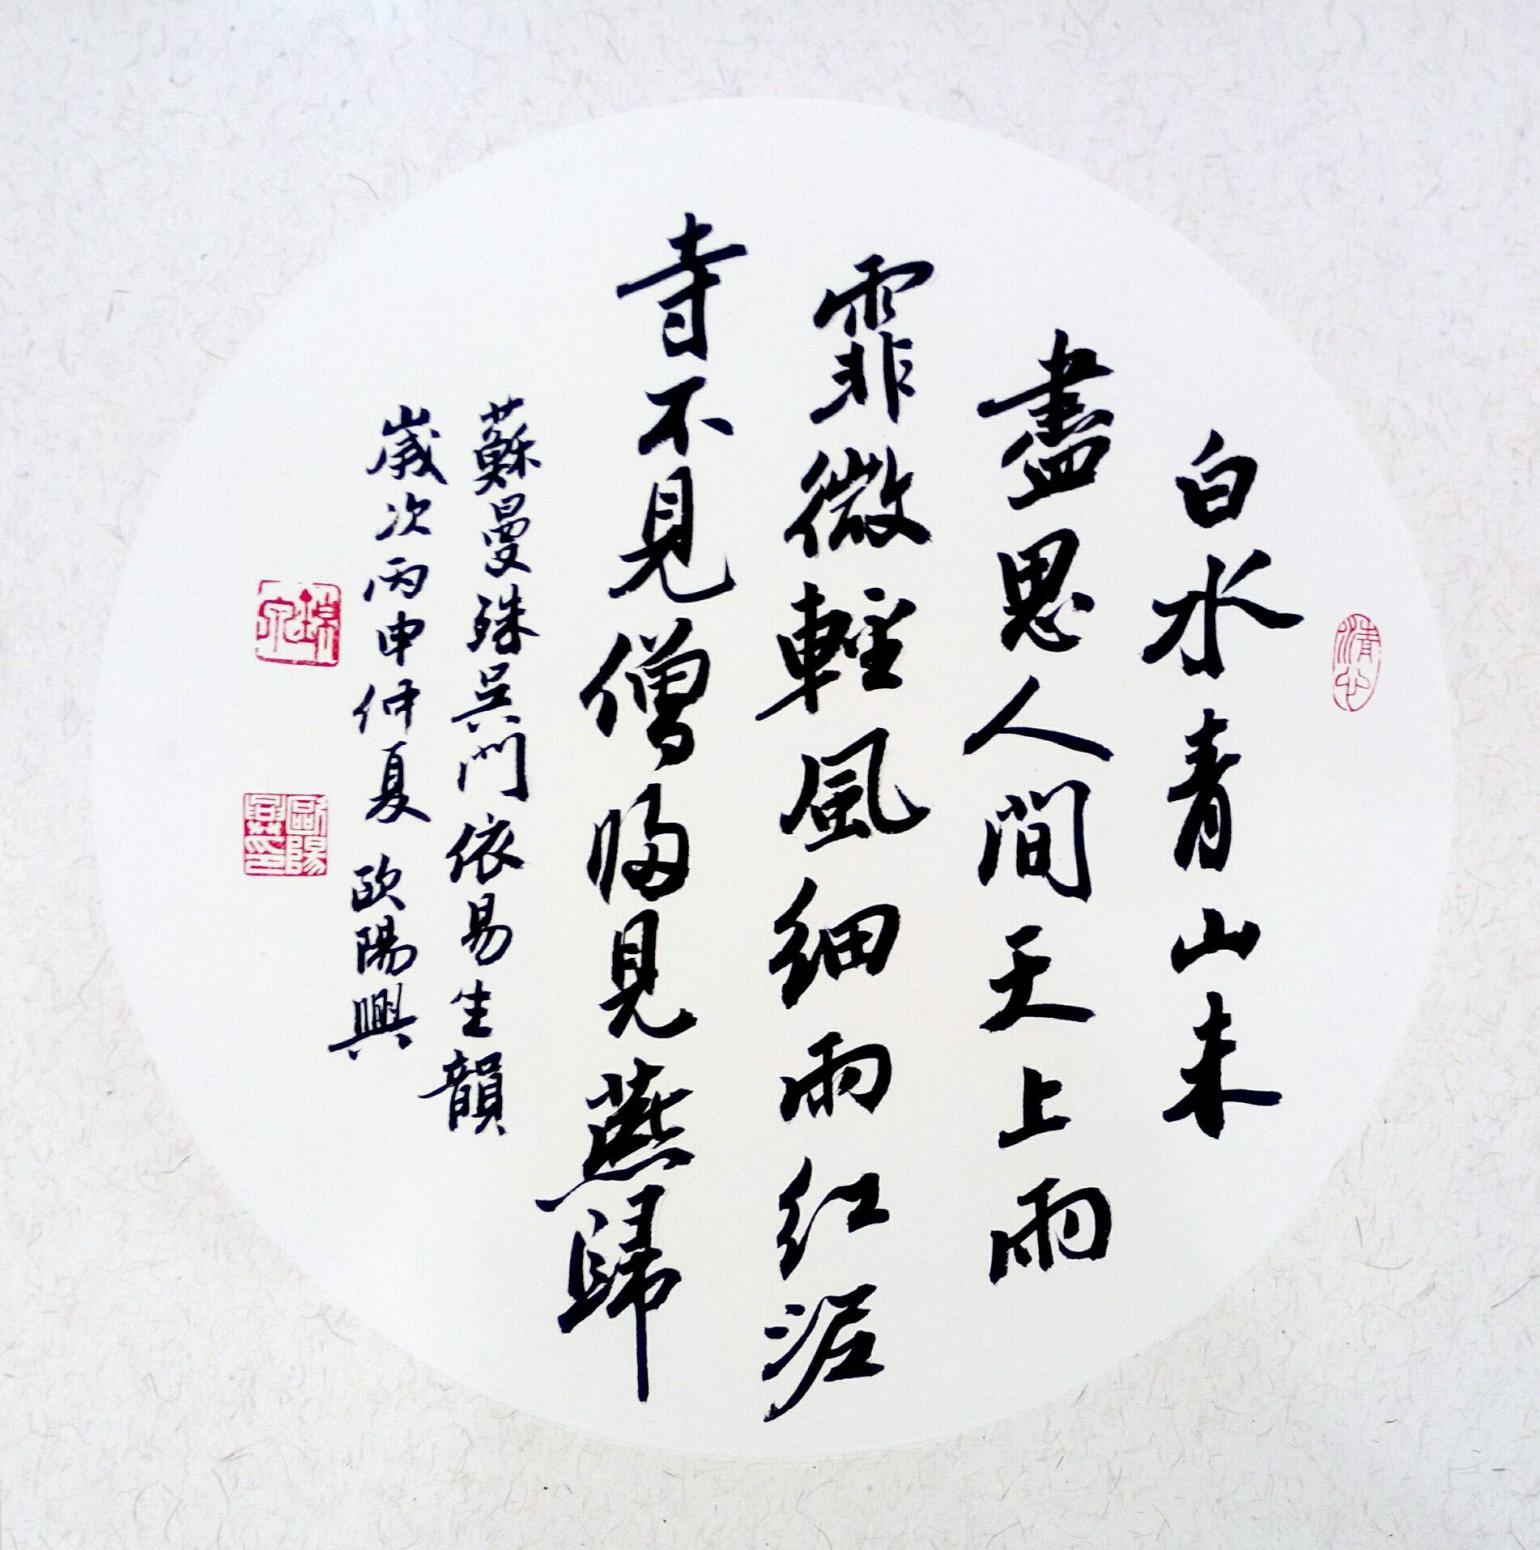 清心
白水青山未
盡思人間天上雨
霏微輕風細雨紅泥
寺不見僧歸見燕歸
蘇曼殊吳門依易生韻
歲次丙申仲夏 欧陽興
歐陽興印